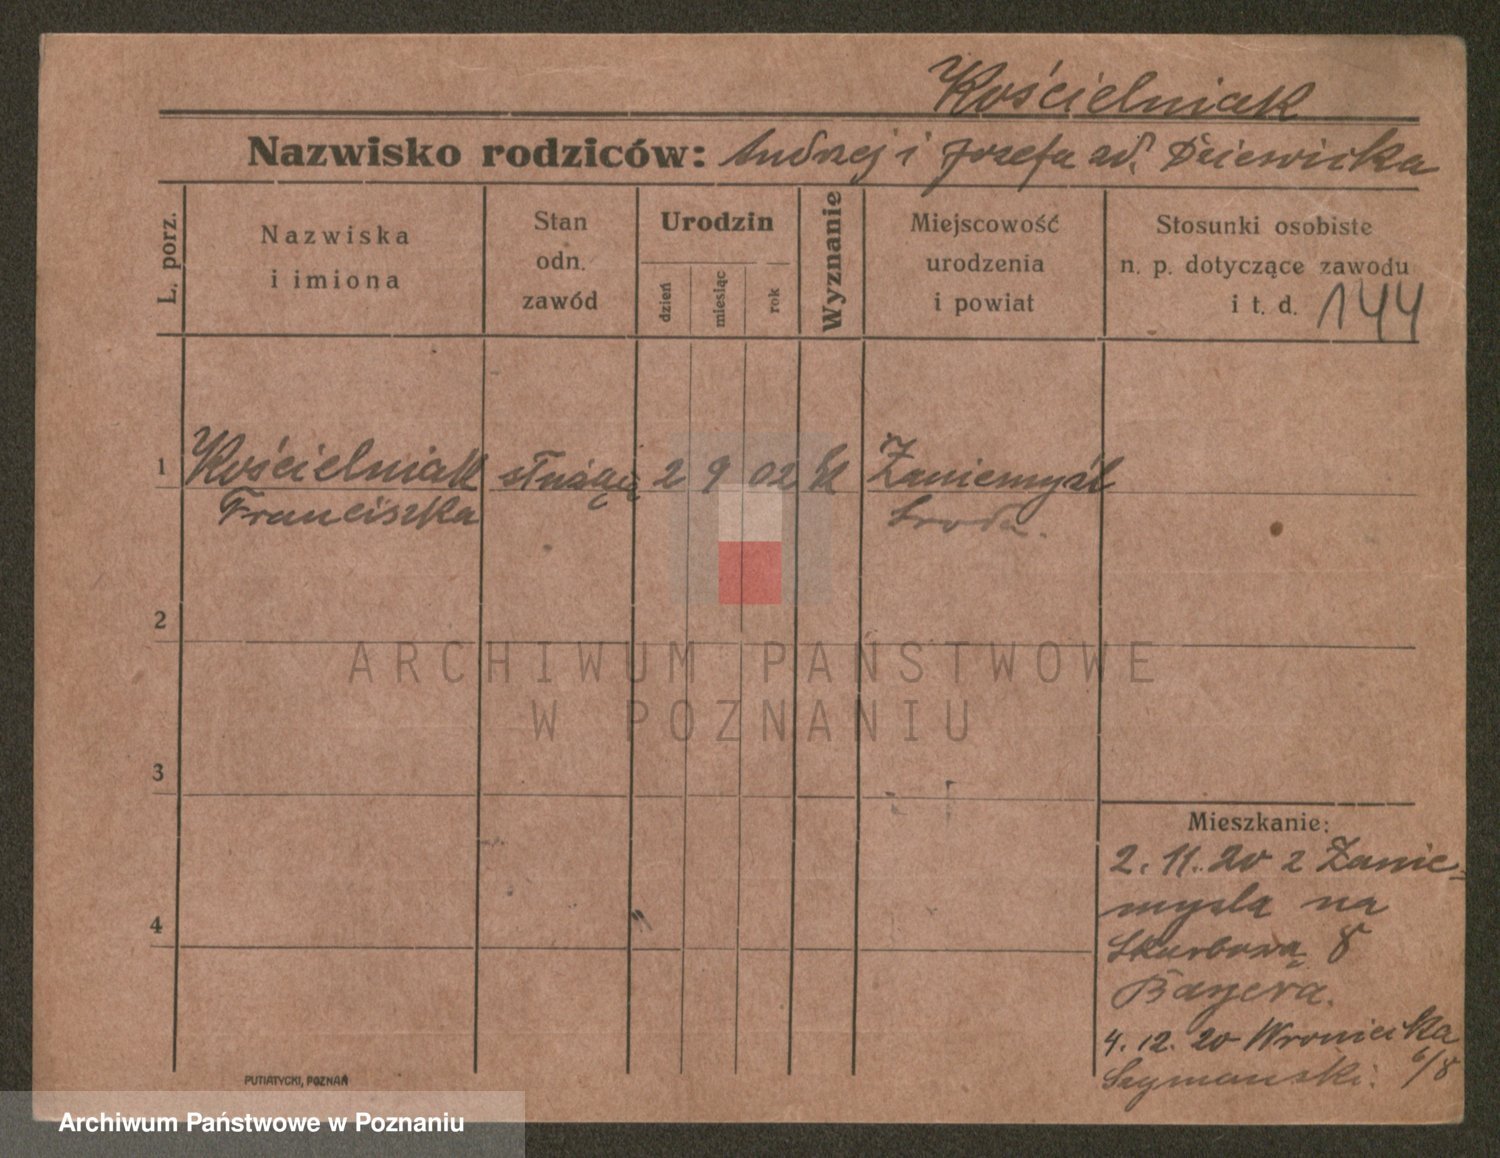 Kościelniak
Nazwisko rodziców: Andrzej i Jozefa zd. Dziewicka
L. porz.
Nazwiska
i imiona
Stan
odn.
zawód
Urodzin
dzień
miesiąc
rok
Wyznanie
Miejscowość
urodzenia
i powiat
Stosunki osobiste
n. p. dotyczące zawodu
i t. d. 144
1 Kościelniak służąca 2 9 02 kt Zaniemyśl
Franciszka Sroda.
2
3
4
Mieszkanie:
2. 11. 20 z Zanie=
myśla na
Skarbową 8
Bayera.
4. 12. 20 Wroniecka
Szymanski. 6/8
PUTIATYCKI, POZNAŃ
ARCHIWUM PAŃSTWOWE
W POZNANIU
Archiwum Państwowe w Poznaniu